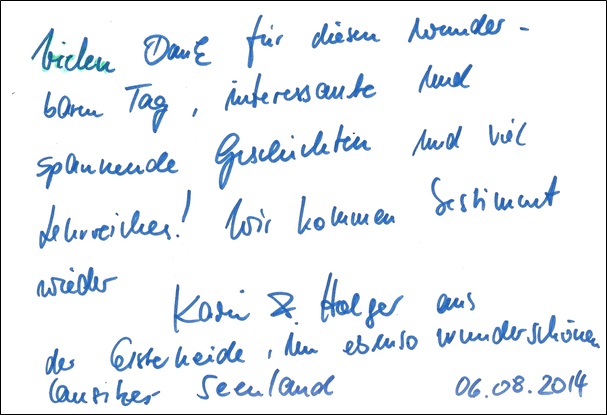 Vielen Dank für diesen wunder-
baren Tag, interessante und
spannende Geschichten und viel
Lehrreiches! Wir kommen bestimmt
wieder
Karin & Holger aus
der Elsterheide, im ebenso wunderschönen
Lausitzer Seenland 06.08.2014